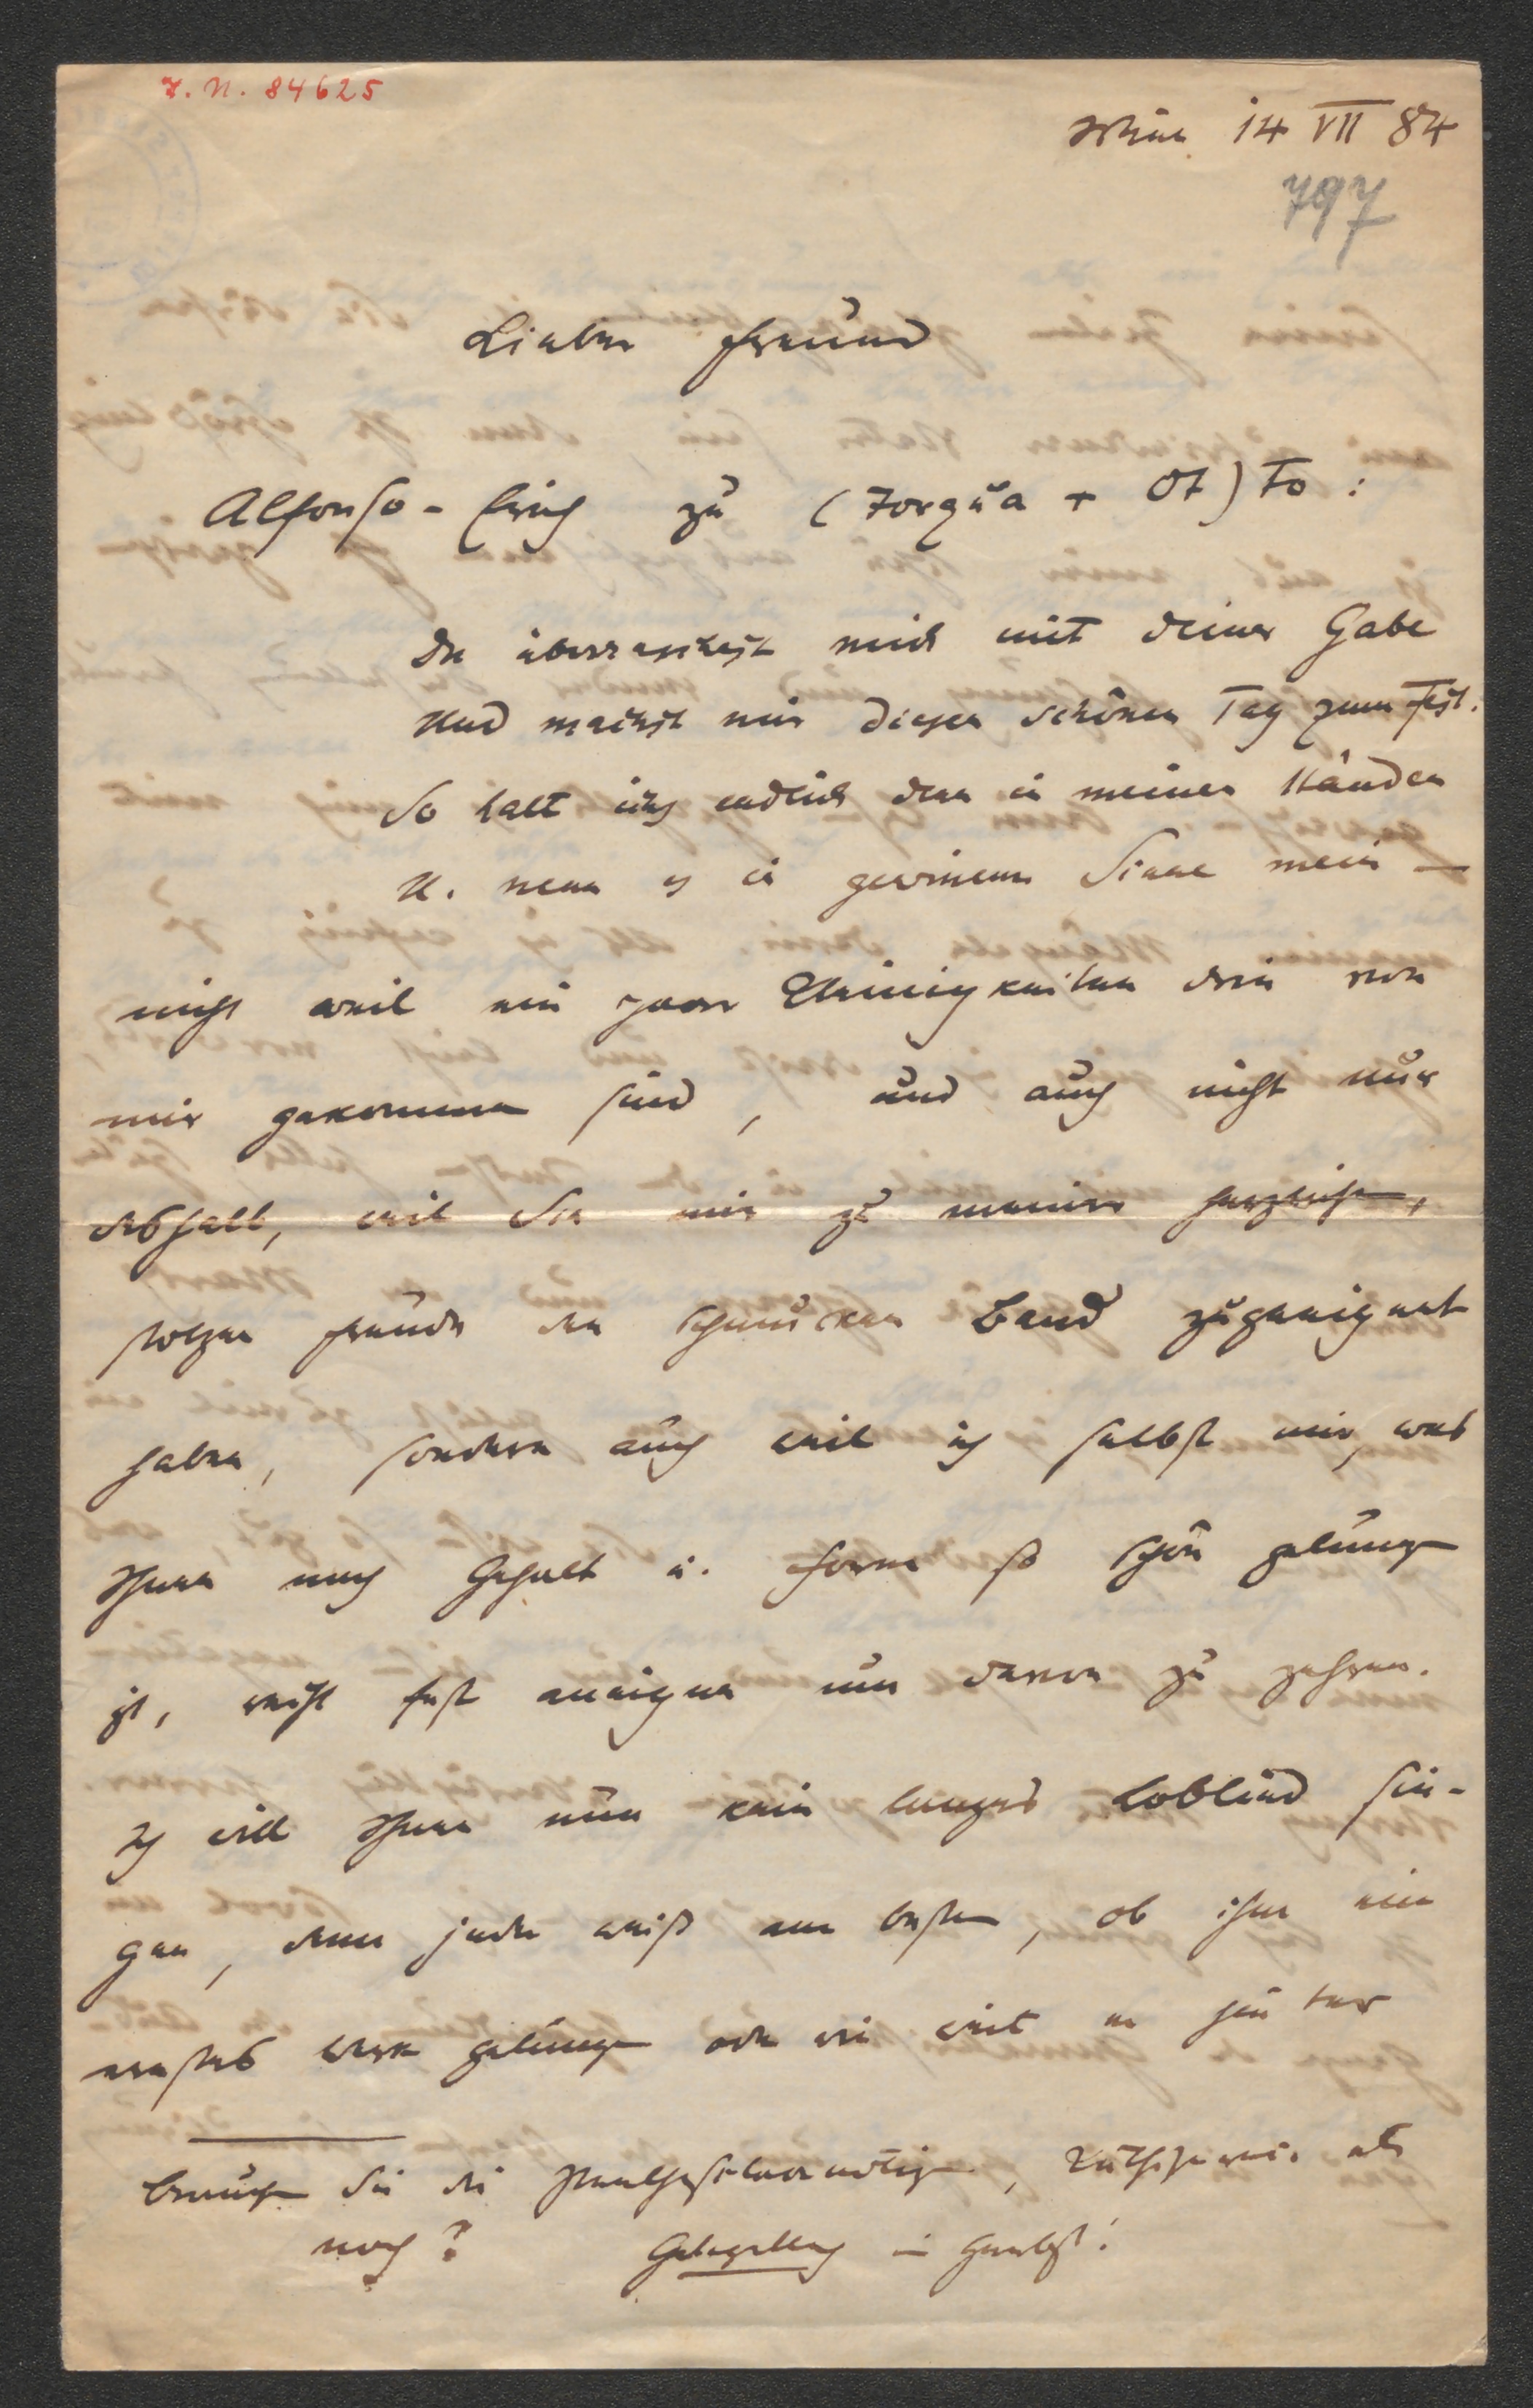 I. N. 84625
Wien 14 VII 84
797
Lieber Freund
Alfonso - Erich zu (Torqua + Ot) To :
Du überraschest mich mit deiner Gabe
Und machst mir diesen schönen Tag zum Fest.
So halt ichs endlich denn in meinen Händen
U. nenn es in gewissem Sinne mein —
nicht weil ein paar Kleinigkeiten drin von
mir gekommen sind, und auch nicht nur
deshalb, weil Sie mir zu meiner herzlichen,
stolzen Freude den schmucken Band zugeeignet
haben, sondern auch weil ich selbst mir, was
Ihnen nach Gehalt u. Form so schön gelungen
ist, recht fest aneignen um davon zu zehren.
Ich will Ihnen nun kein langes Loblied sin-
gen, denn jeder weiß am besten, ob ihm ein
ernstes Werk gelungen oder wie weit er hinter
Brauchen Sie die , als
noch? in Herbst!